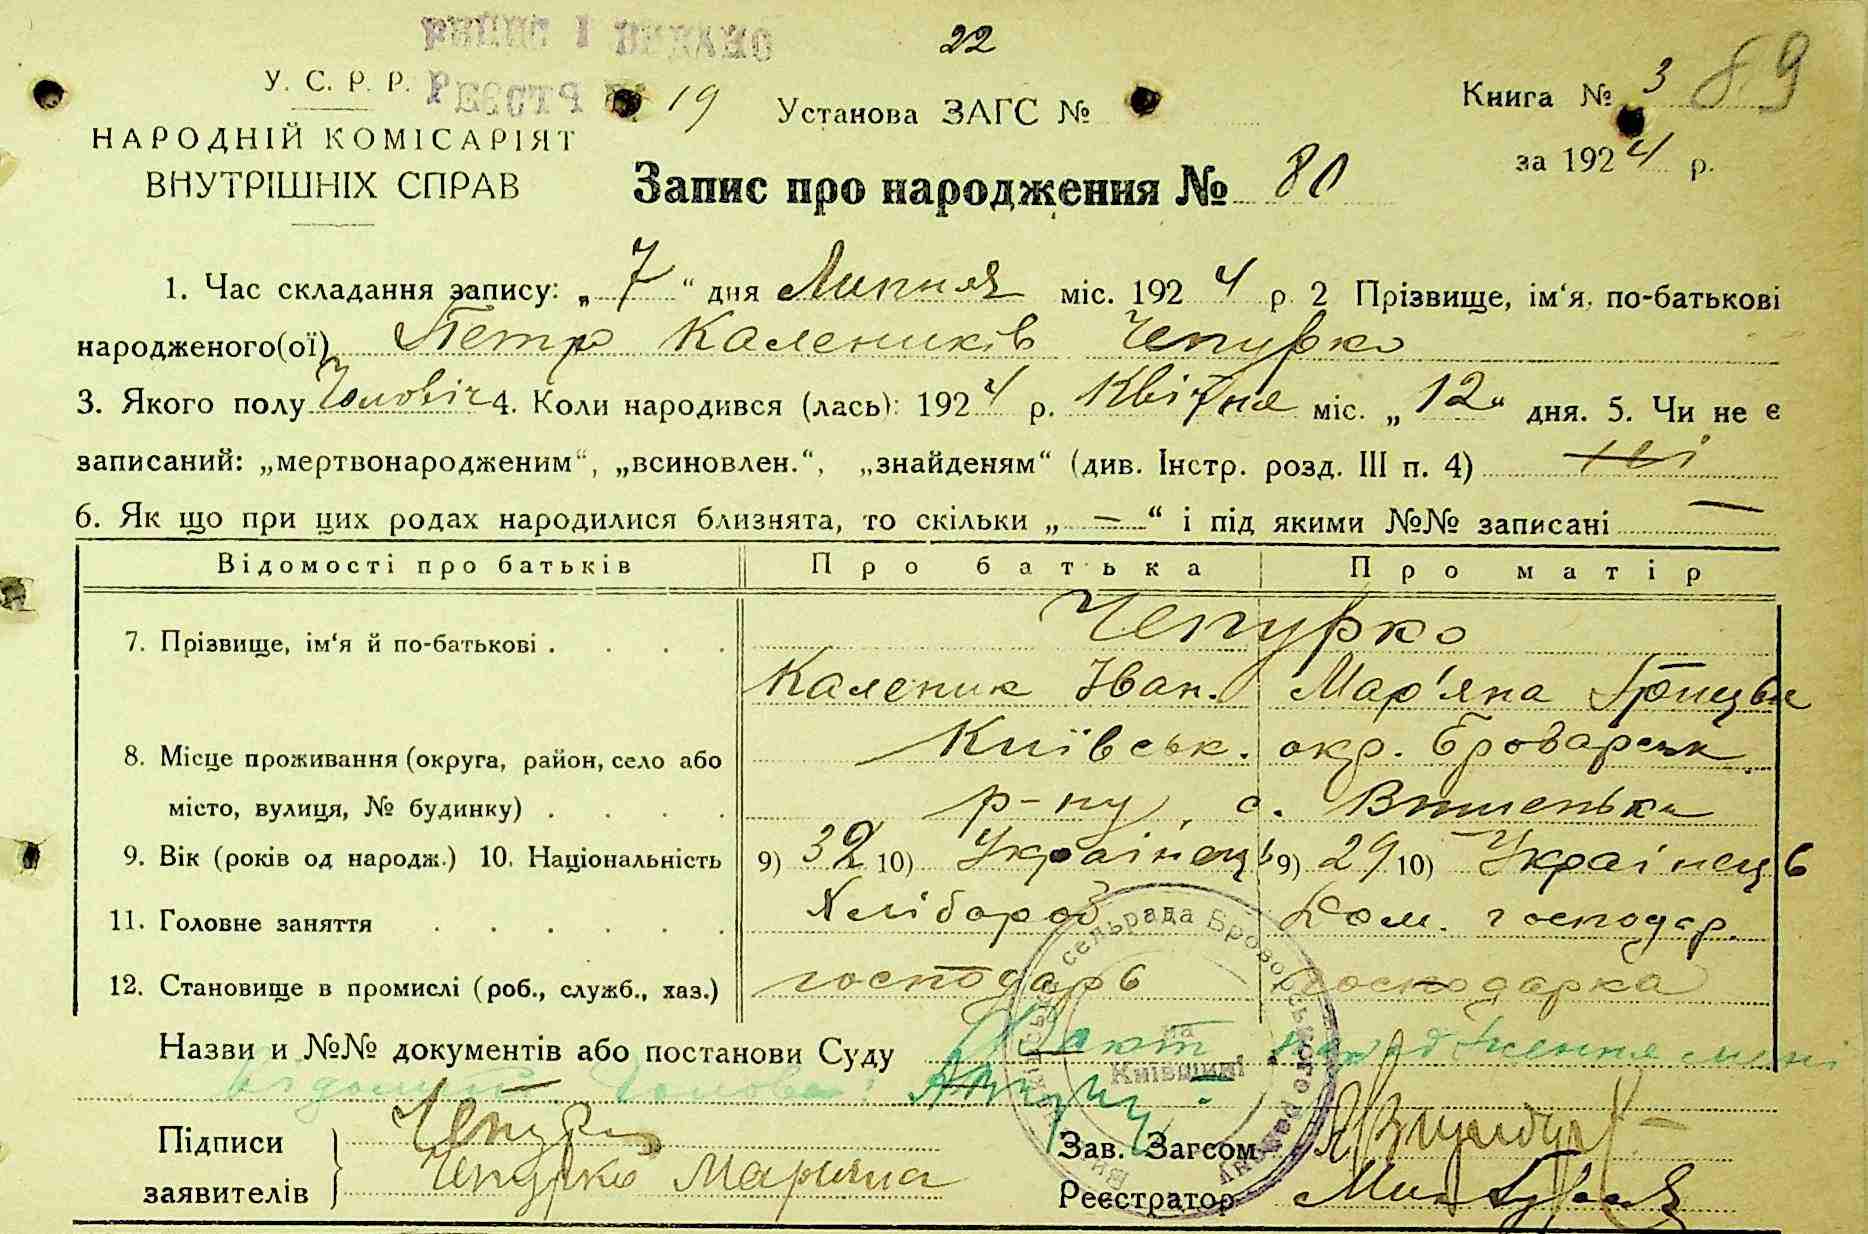 22
У. С. Р. Р.
РЕЕСТР № 19
Установа ЗАГС №
Книга № 3
89
НАРОДНІЙ КОМІСАРІЯТ
ВНУТРІШНІХ СПРАВ
за 1924 р.
Запис про народження № 80
1. Час складання запису: „7“ дня Липня міс. 1924 р. 2 Прізвище, ім‘я, по-батькові
народженого(ої) Петро Калеників Чепурко
3. Якого полу Чоловіч 4. Коли народився (лась): 1924 р. Квітня міс. „12“ дня. 5. Чи не є
записаний: „мертвонародженим“, „всиновлен.“, „знайденям“ (див. Інстр. розд. III п. 4) ні
6. Як що при цих родах народилися близнята, то скільки „—“ і під якими №№ записані —
Відомості про батьків Про батька Про матір
7. Прізвище, ім‘я й по-батькові . . . . Чепурко
Каленик Іван. Мар'яна Грицьв
8. Місце проживання (округа, район, село або Київськ. окр. Броварськ
місто, вулиця, № будинку) . . . . р-ну, с. Вишеньки
9. Вік (років од народж.) 10. Національність 9) 32 10) Українець 9) 29 10) Українець
11. Головне заняття . . . . . . Хлібороб Дом. господар.
12. Становище в промислі (роб., служб., хаз.) господарь господарка
Назви и №№ документів або постанови Суду Факт народження мені
відомий. Голова:
Підписи Чепурко
заявителів Чепурко Марияна
Зав. Загсом
Реєстратор
сельрада Бровар
на Київщині